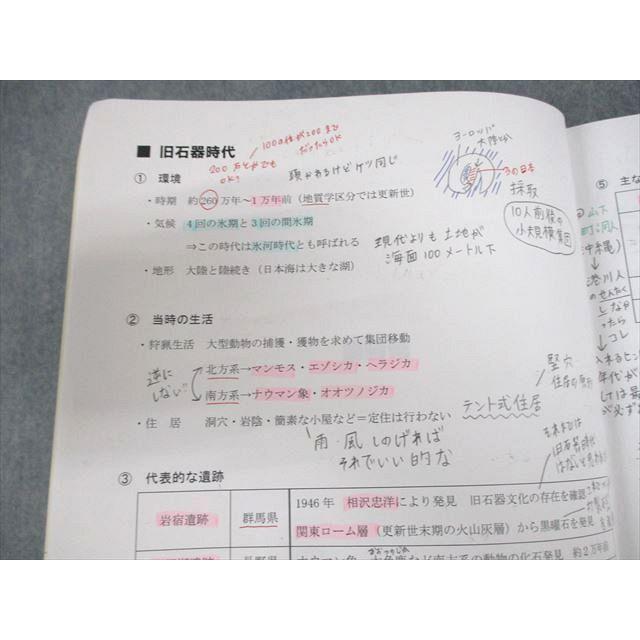 ■ 旧石器時代
200万とかでもOK?
① 環境
頭かわるけどケツ同じ
・時期 約260万年～1万年前(地質学区分では更新世)
・気候 4回の氷期と3回の間氷期
⇒この時代は氷河時代とも呼ばれる
現代よりも土地が
海面100メートル下
・地形 大陸と陸続き(日本海は大きな湖)
ヨーロッパ
大陸
3の日本
採取
10人前後の
小大規模集団
⑤ 主な
山下
町洞人
沖縄)
港川人
② 当時の生活
・狩猟生活 大型動物の捕獲・獲物を求めて集団移動
逆に
しない!!
北方系→マンモス・エゾシカ・ヘラジカ
南方系→ナウマン象・オオツノジカ
・住 居 洞穴・岩陰・簡素な小屋など＝定住は行わない
テント式住居
竪穴
住居の
雨・風しのげれば
それでいい的な
旧石器時代
はない
③ 代表的な遺跡
岩宿遺跡 群馬県
1946年 相沢忠洋により発見 旧石器文化の存在を確認
関東ローム層(更新世末期の火山灰層)から黒曜石を発見
など南方系の動物の化石発見 約2万年前